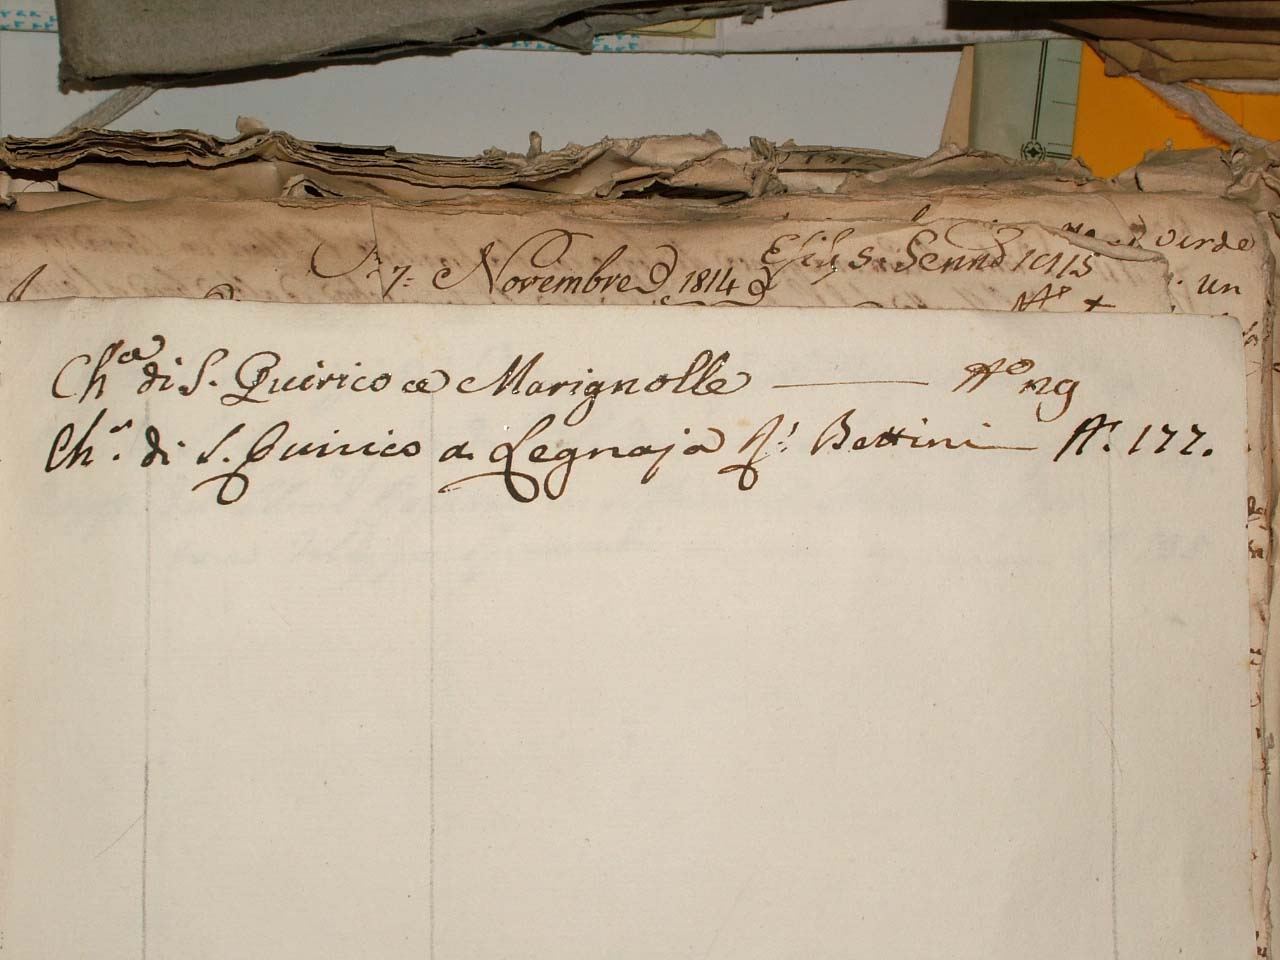 7. Novembre 1814
verde
un
Ch.ª di S. Quirico a Marignolle — Nº 119
Ch.ª di S. Quirico a Legnaja Bettini — Nº. 177.